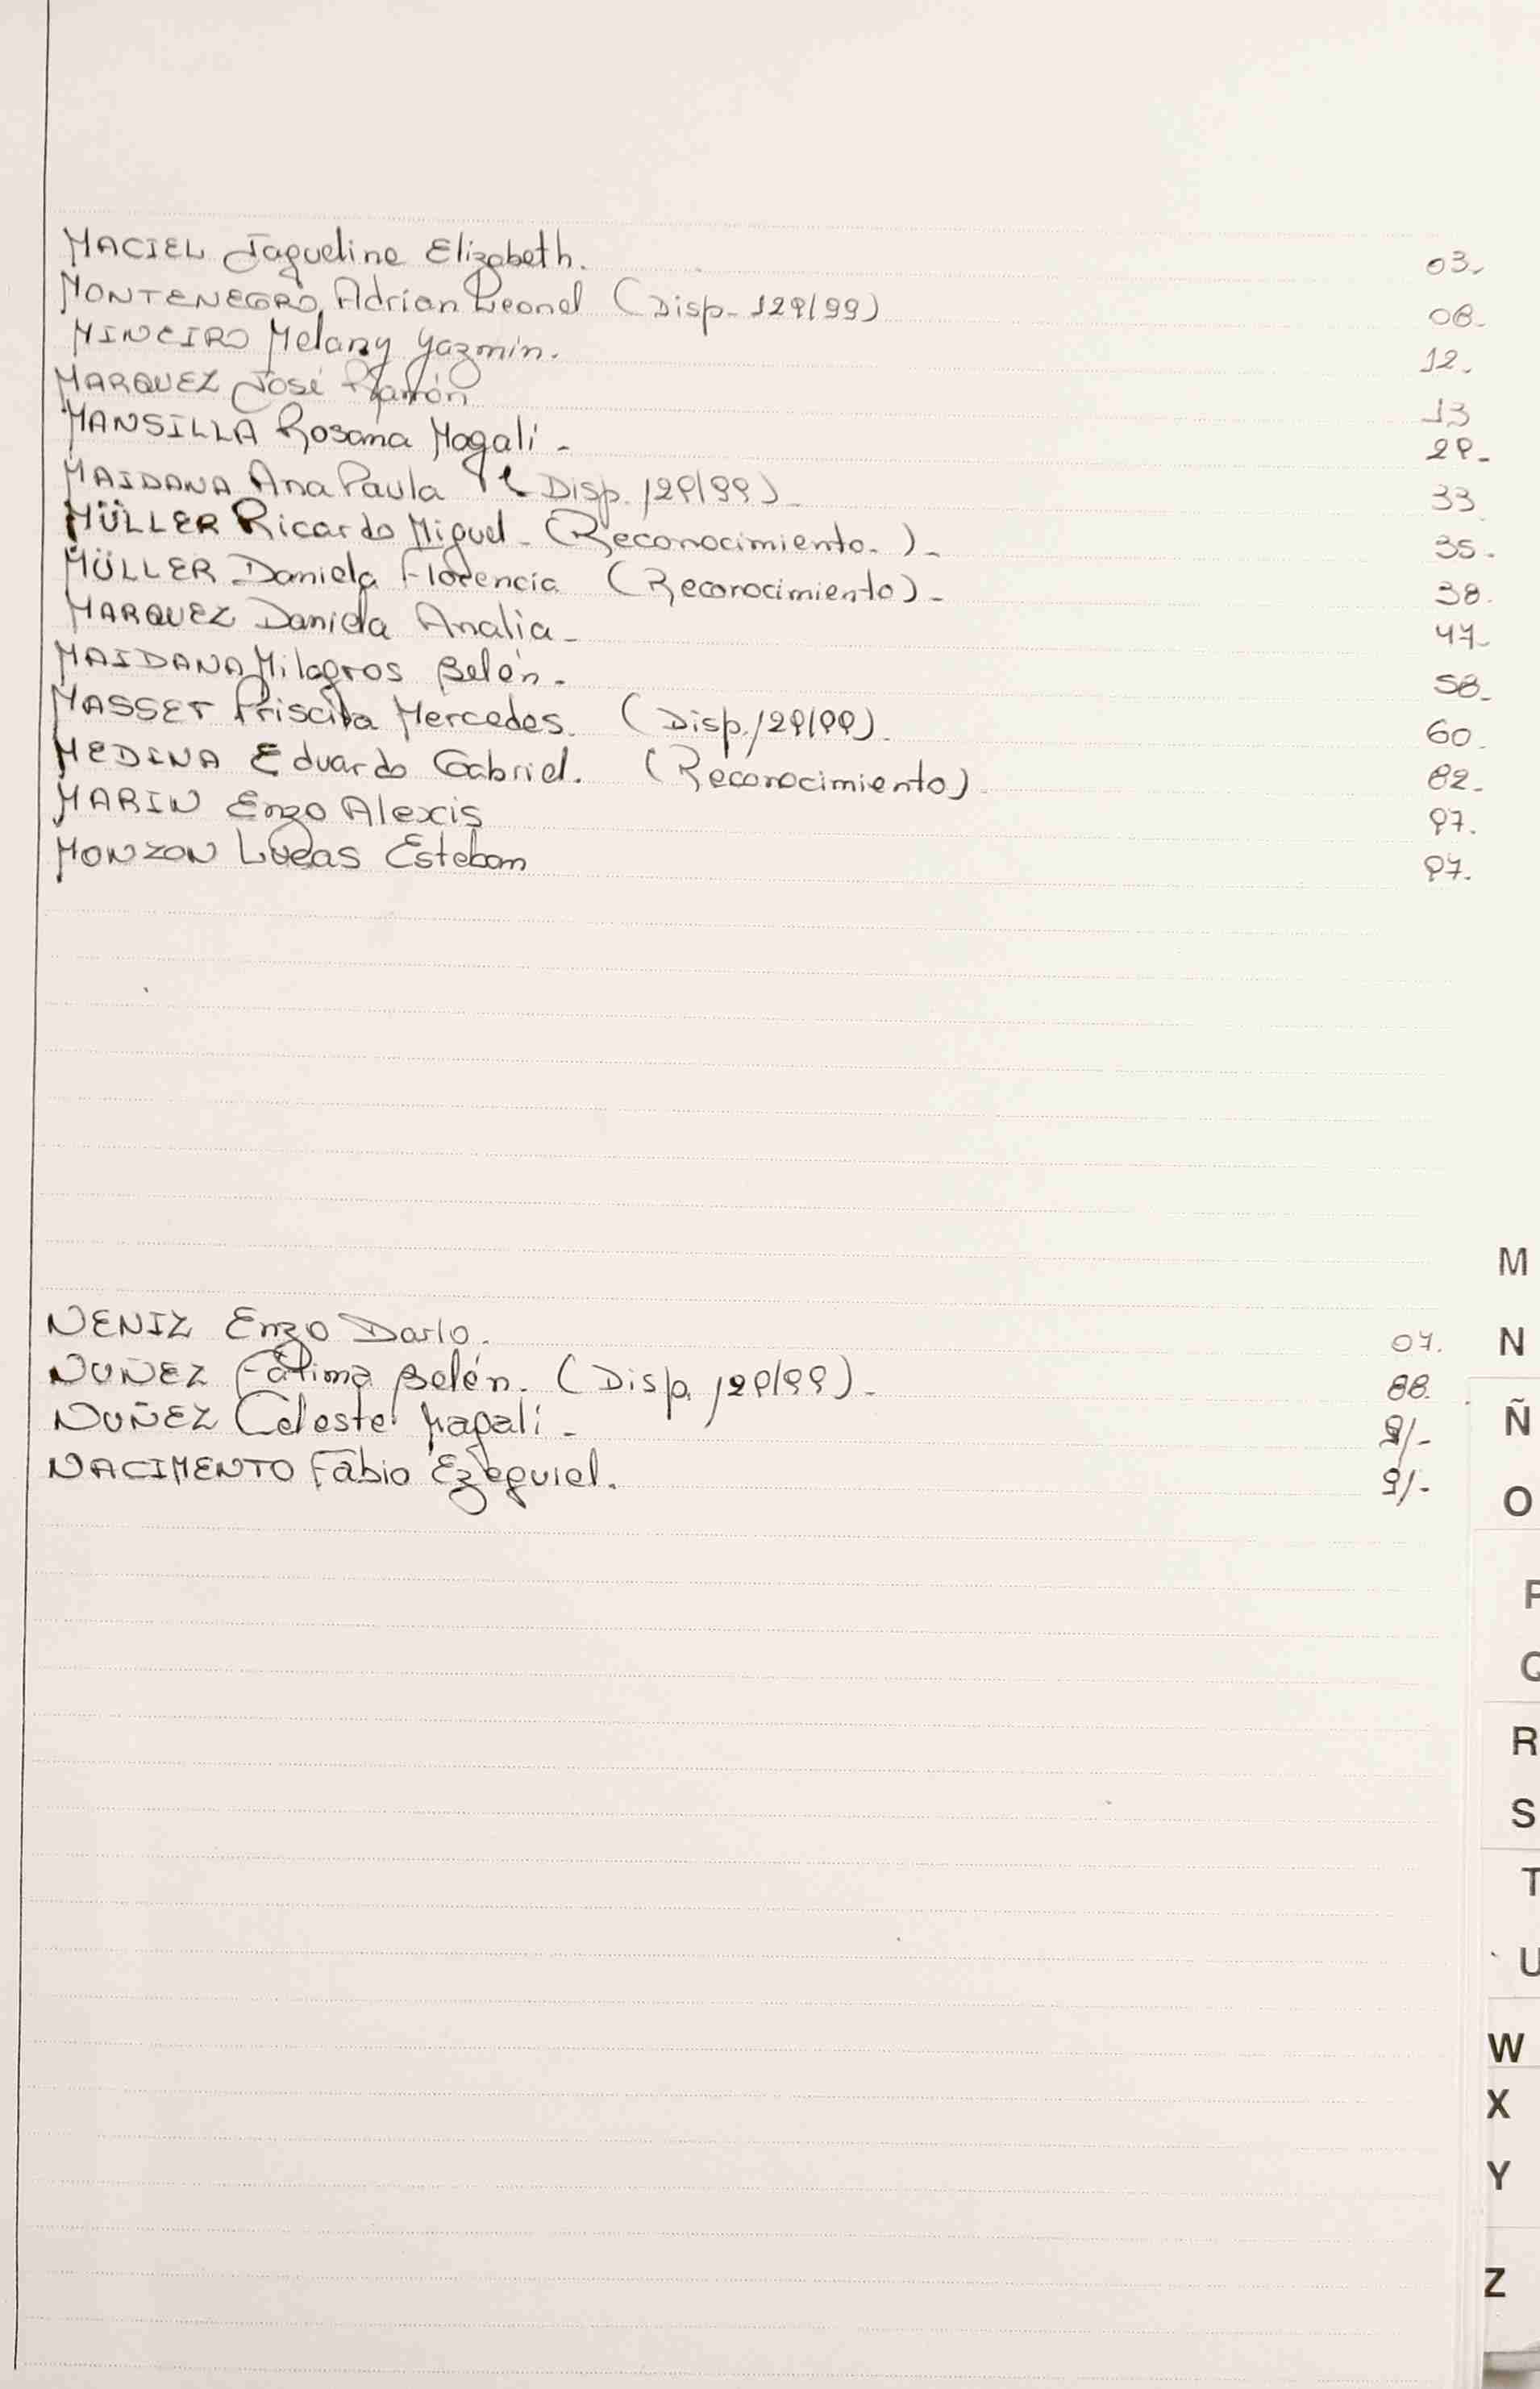 MACIEL Jaqueline Elizabeth. 03.
MONTENEGRO, Adrián Leonel (Disp- 129/99) 08.
MINEIRO Melany Yazmín. 12.
MARQUEZ José Ramón 13
MANSILLA Rosana Magalí - 29-
MAIDANA Ana Paula (Disp. 129/99)- 33
MÜLLER Ricardo Miguel - (Reconocimiento.)- 35.
MÜLLER Daniela Florencia (Reconocimiento)- 38.
MARQUEZ Daniela Analía- 47-
MAIDANA Milagros Belén. 58-
MASSET Priscila Mercedes. (Disp. 129/99). 60.
MEDINA Eduardo Gabriel. (Reconocimiento) 82.
MARIN Enzo Alexis 97.
MONZON Lucas Esteban 97.
M
NENIZ Enzo Darío. 07.
N
NUÑEZ Fátima Belén. (Disp. 129/99). 88.
NUÑEZ Celeste Magalí - 91-
Ñ
NACIMENTO Fabio Ezequiel. 91-
O
P
Q
R
S
T
U
W
X
Y
Z